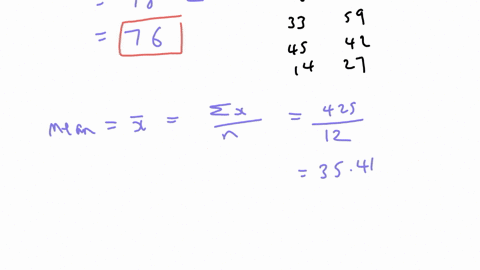 = 76
33 59
45 42
14 27
mean = x̄ = Σx/n = 425/12
= 35.41